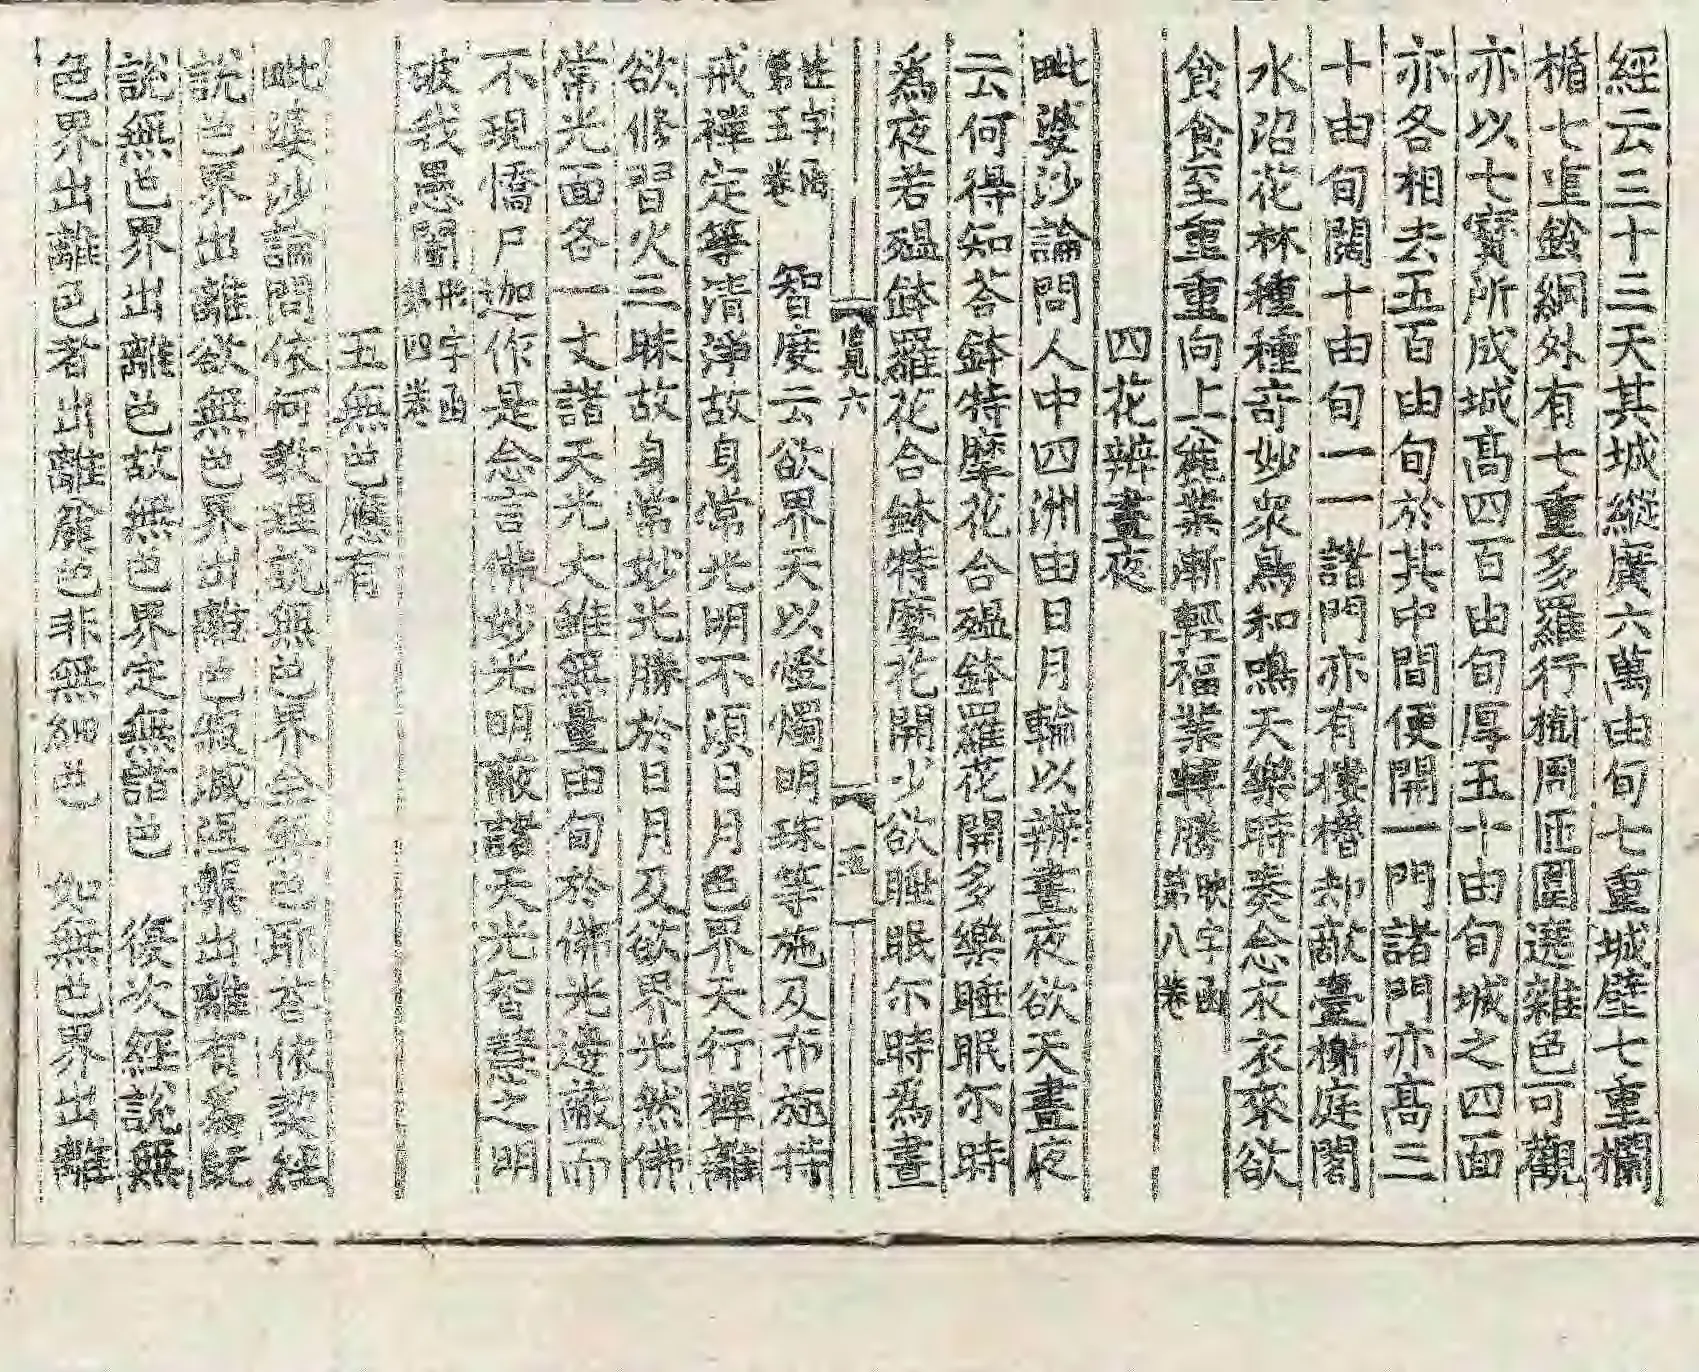 經云三十三天其城縱廣六萬由旬七重城壁七重欄
楯七重鈴網外有七重多羅行樹周匝圍遶雜色可觀
亦以七寶所成城高四百由旬厚五十由旬城之四面
亦各相去五百由旬於其中間便開一門諸門亦高三
十由旬闊十由旬一一諸門亦有樓櫓却敵臺榭庭閣
水沼花林種種奇妙衆鳥和鳴天樂時奏念衣衣來欲
食食至重重向上業漸輕福業轉勝 映字函第八卷
四花辨晝夜
毗婆沙論問人中四洲由日月輪以辨晝夜欲天晝夜
云何得知荅鉢特摩花合殟鉢羅花開多樂睡眠尒時
爲夜若殟鉢羅花合鉢特摩花開少欲睡眠尒時為晝
覓六 五
字函第五卷 智度云欲界天以燈燭明珠等施及布施持
戒禪定等清淨故身常光明不須日月色界天行禪離
欲修習火三昧故身常妙光勝於日月及欲界光然佛
常光面各一丈諸天光大雖無量由旬於佛光邊蔽而
不現憍尸迦作是念言佛妙光明蔽諸天光智慧之明
破我愚闇 字函第四卷
五無色應有
毗婆沙論問依何教理說無色界全無色耶荅依契經
說色界出離欲無色界出離色寂滅涅槃出離有爲既
說無色界出離色故無色界定無諸色 後次經說無
色界出離色者出離麁色非無細色 如無色界出離